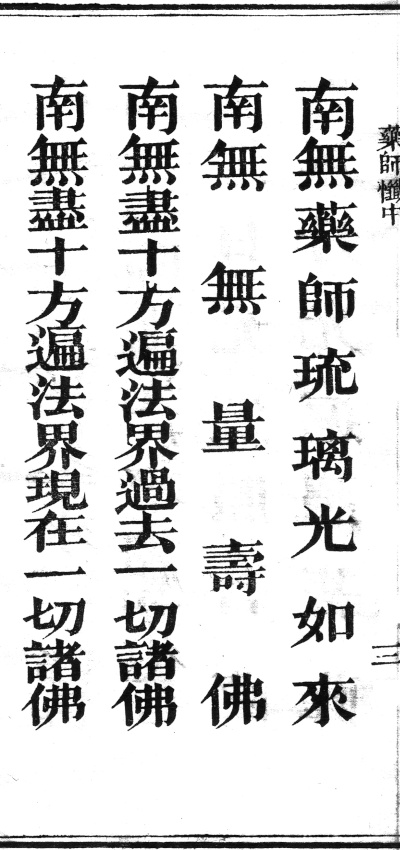 藥師懺中
三
南無藥師琉璃光如來
南無無量壽佛
南無盡十方遍法界過去一切諸佛
南無盡十方遍法界現在一切諸佛